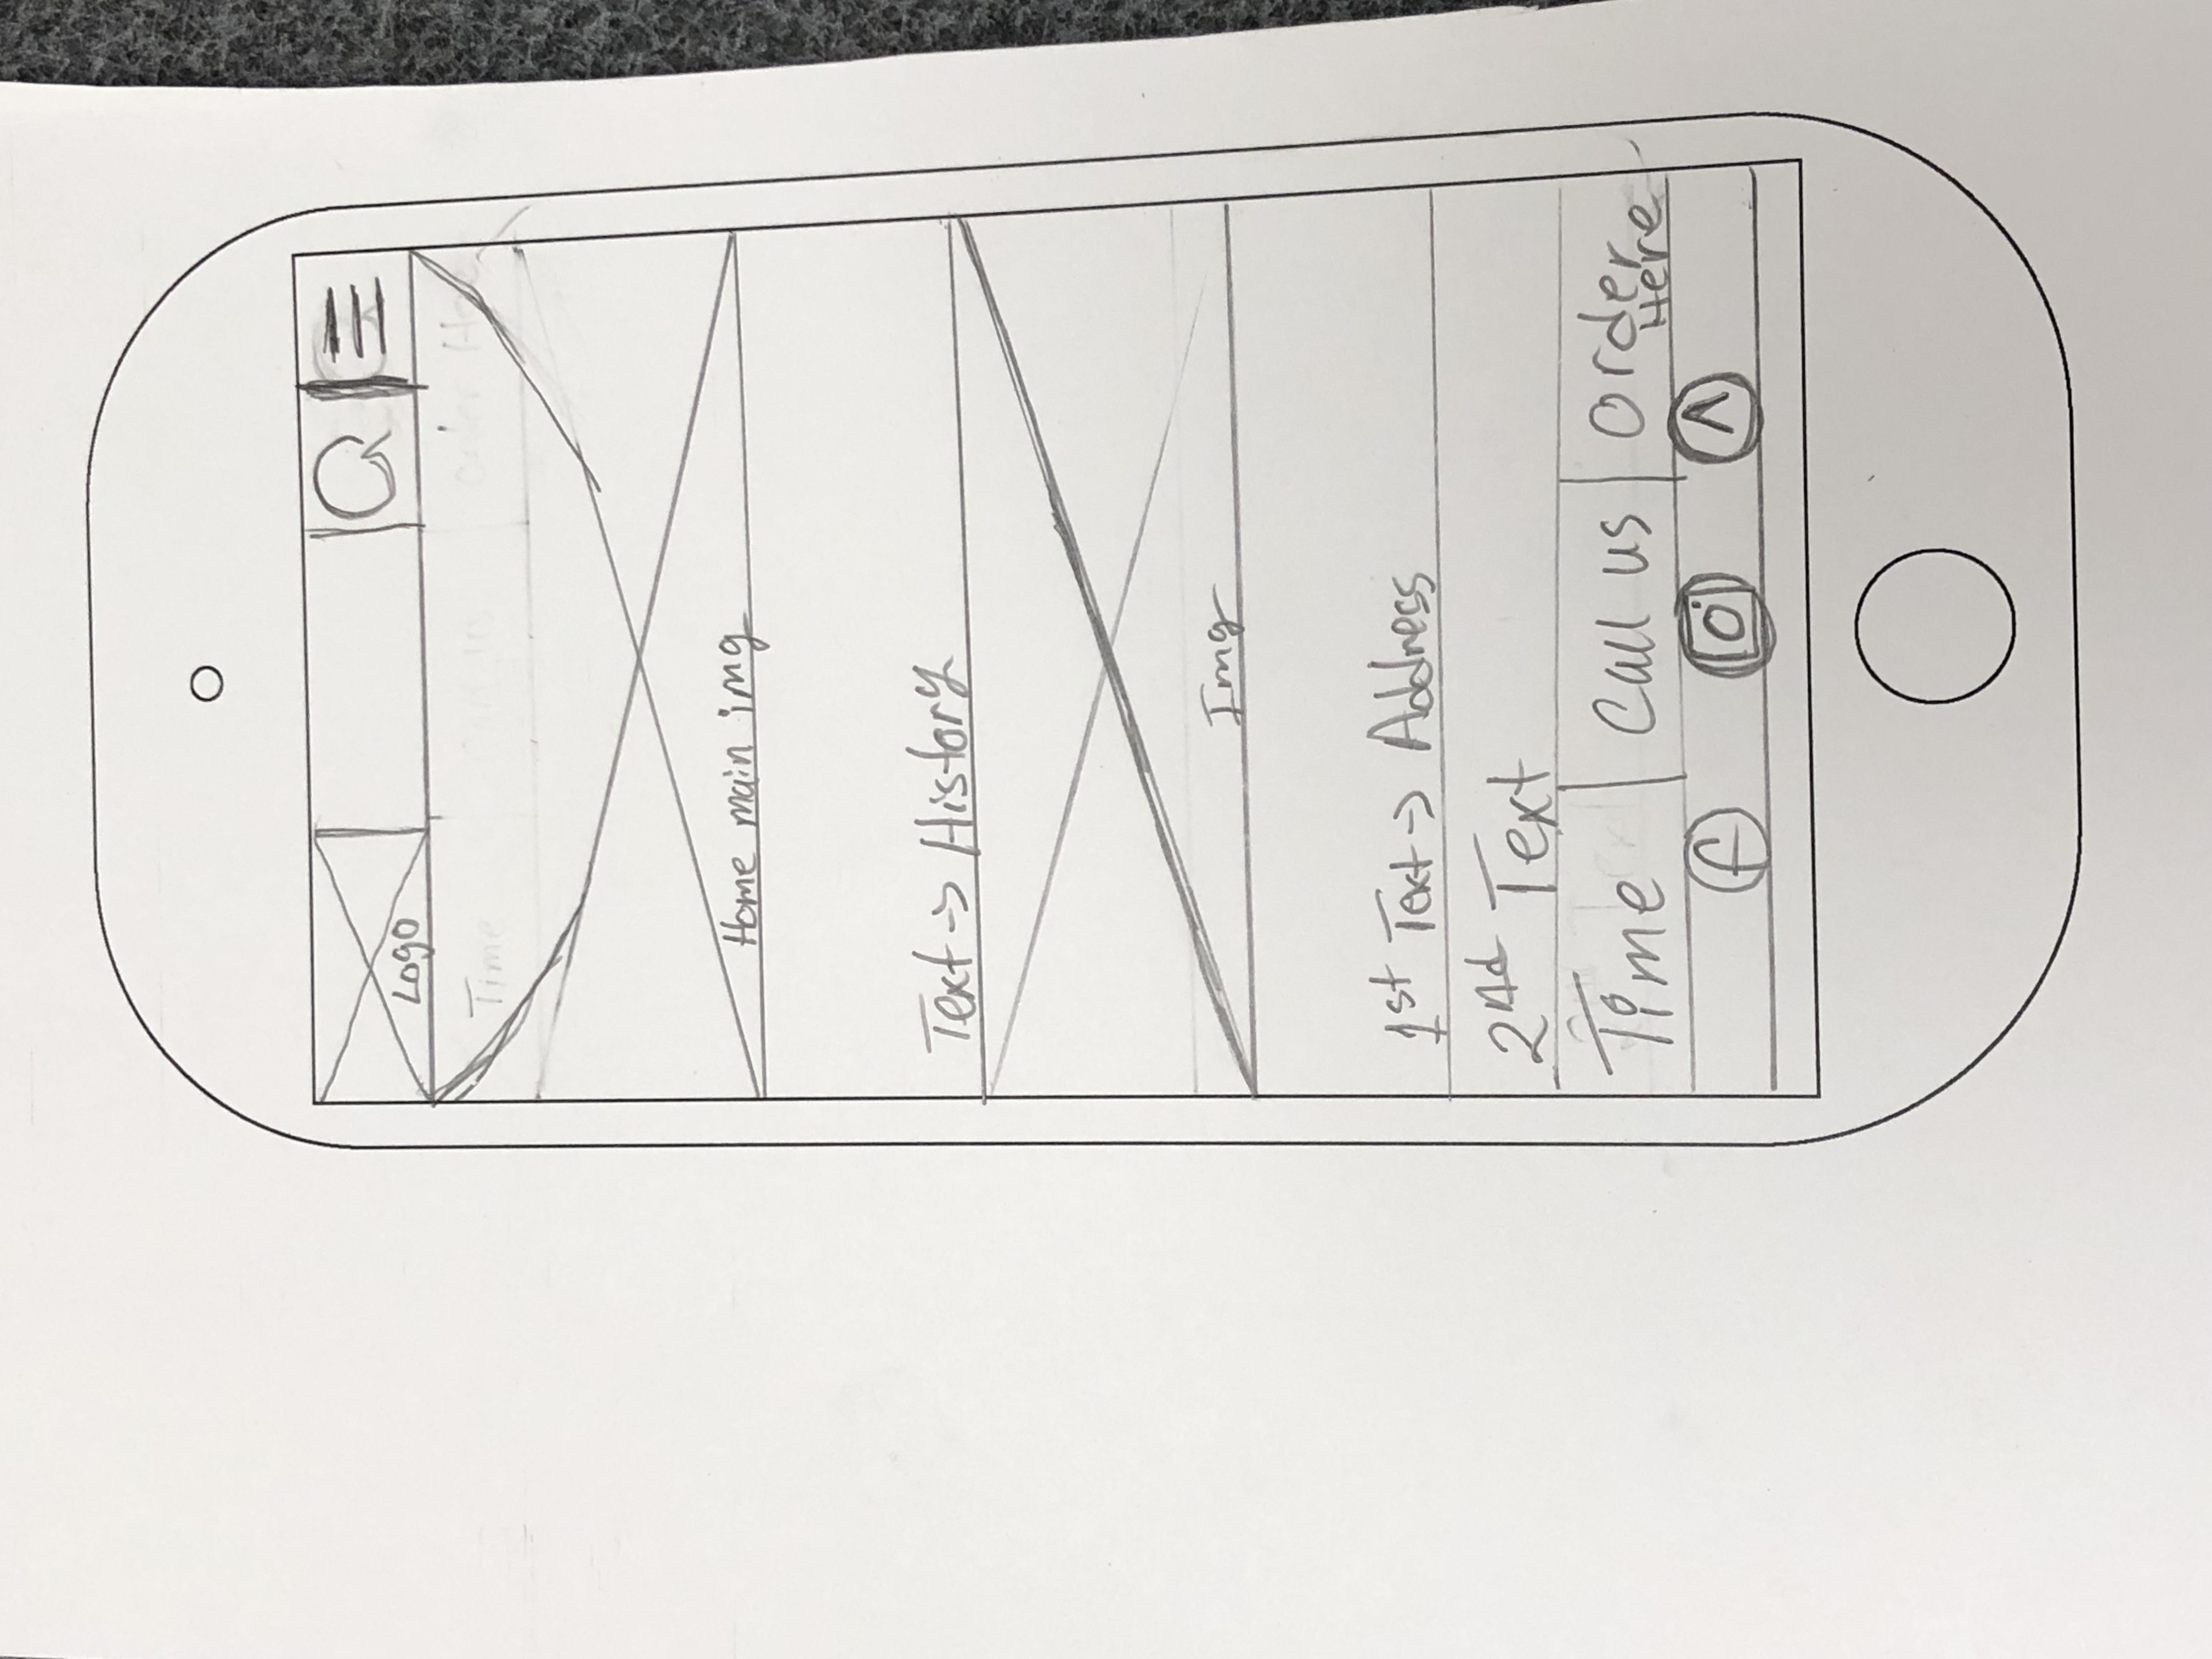 Logo
Time
Home main img
Text -> History
Img
1st Text -> Address
2nd Text
Time
Call us
Order Here
f